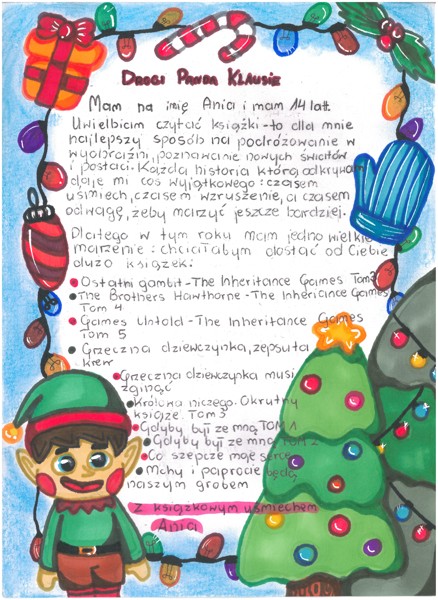 DROGI PANDA KLAUSIE
Mam na imię Ania i mam 14 lat.
Uwielbiam czytać książki - to dla mnie
najlepszy sposób na podróżowanie w
wyobraźni, poznawanie nowych światów
i postaci. Każda historia którą odkrywam
daje mi coś wyjątkowego: czasem
uśmiech, czasem wzruszenie, a czasem
odwagę, żeby marzyć jeszcze bardziej.
Dlatego w tym roku mam jedno wielkie
marzenie: chciałabym dostać od Ciebie
dużo książek:
Ostatni gambit - The Inheritance Games Tom 3
The Brothers Hawthorne - The Inheritance Games
Tom 4
Games Untold - The Inheritance Games
Tom 5
Grzeczna dziewczynka, zepsuta
krew
Grzeczna dziewczynka musi
zginąć
Królowa niczego. Okrutny
książę. Tom 3
Gdyby był ze mną TOM 1
Gdybyś był ze mną TOM 2
Co szepcze moje serce
Mchy i paprocie będą
naszym grobem
Z książkowym uśmiechem
Ania